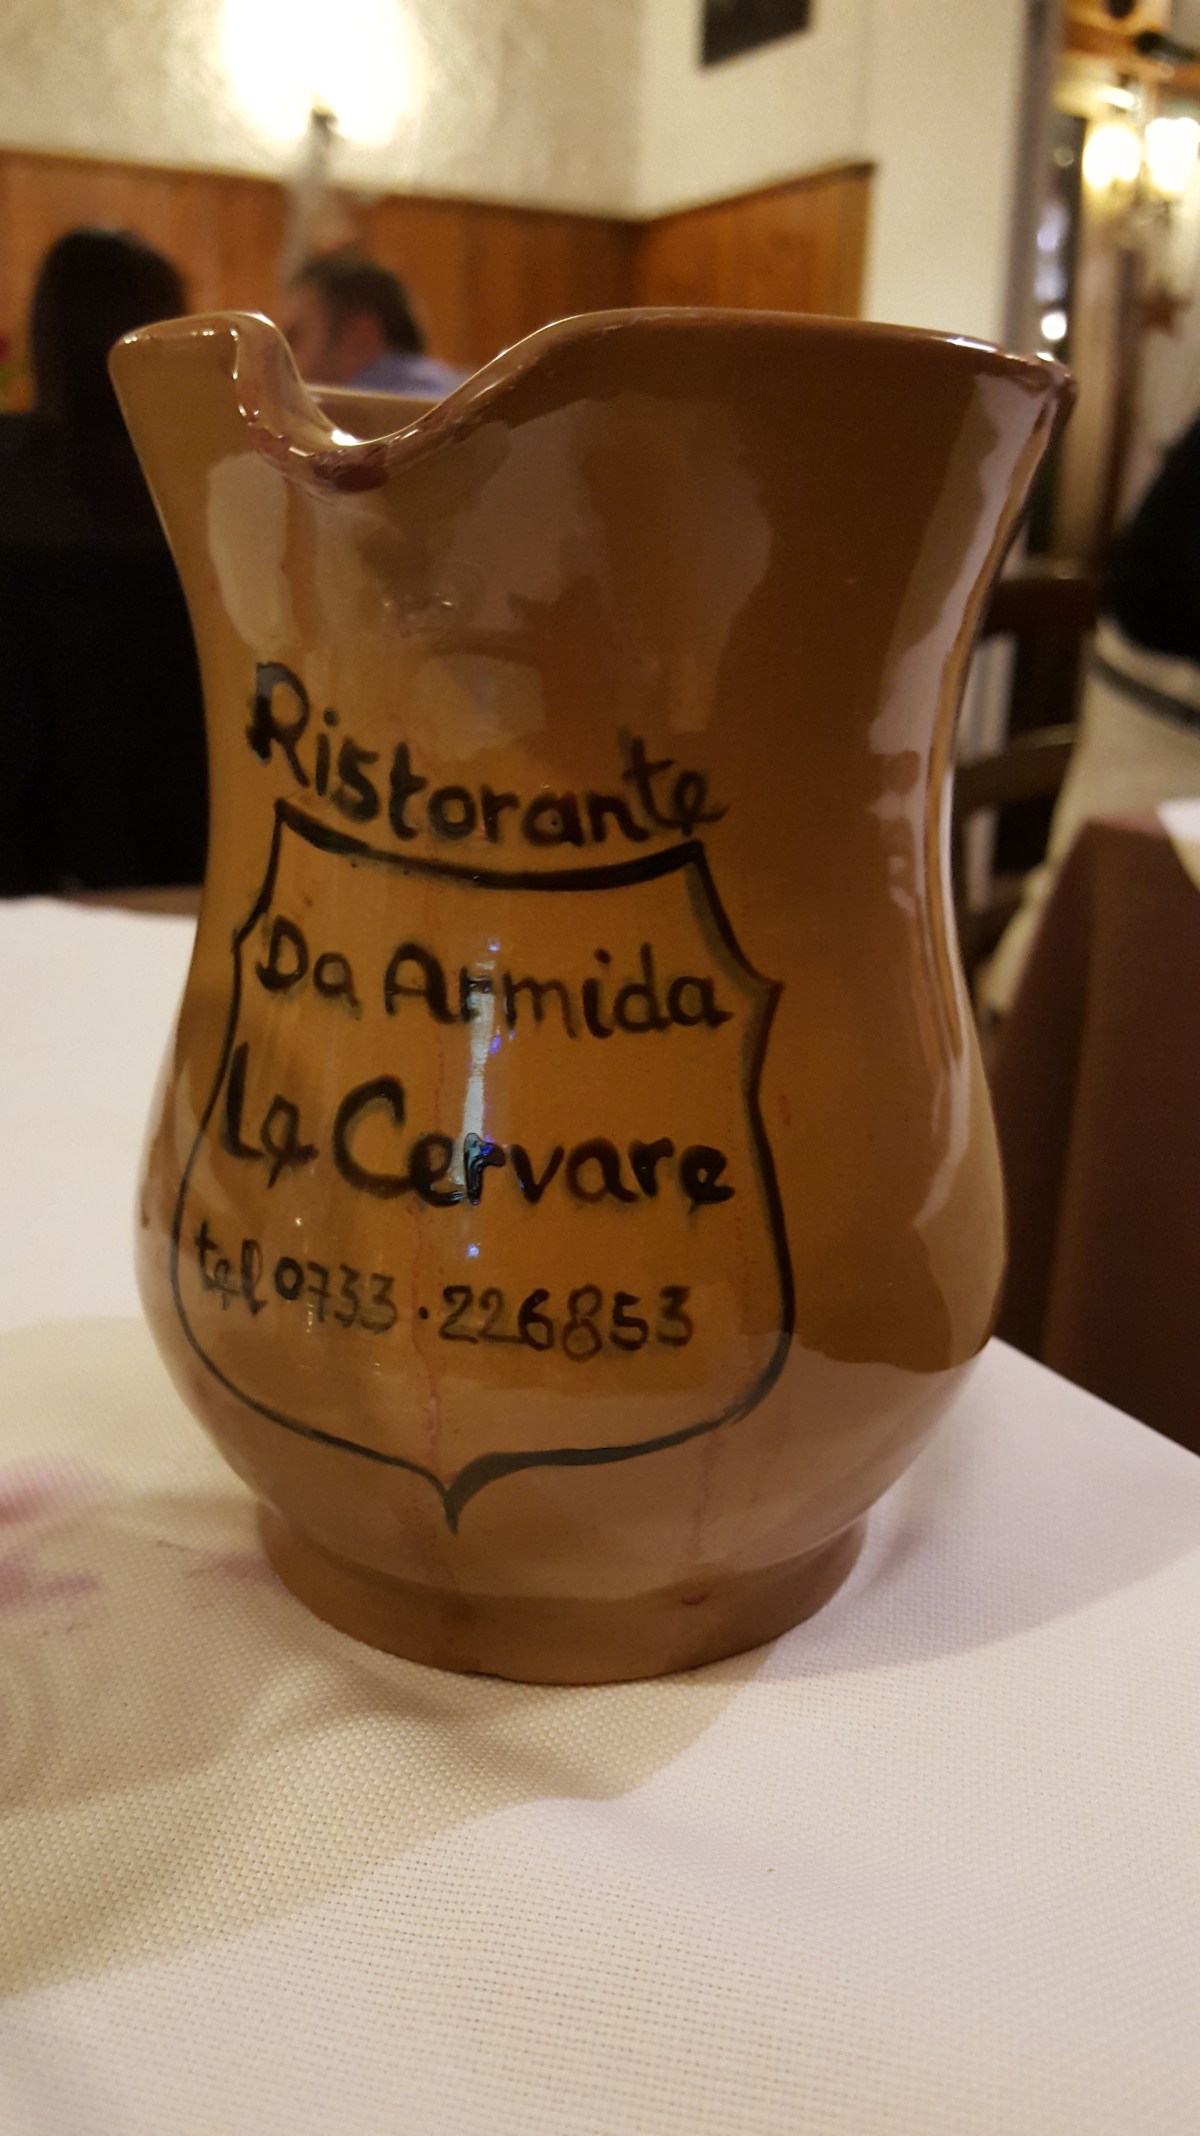 Ristorante
Da Armida
Le Cervare
tel 0733 · 226853